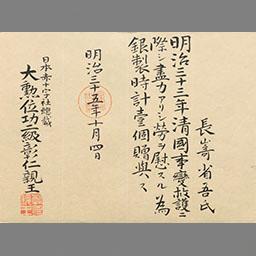 長嵜省吾氏
明治三十三年清國事變救護ニ
際シ盡力アリシ勞ヲ慰スル為
銀製時計壹個贈與ス
明治三十五年十月四日
日本赤十字社總裁
大勲位功二級彰仁親王